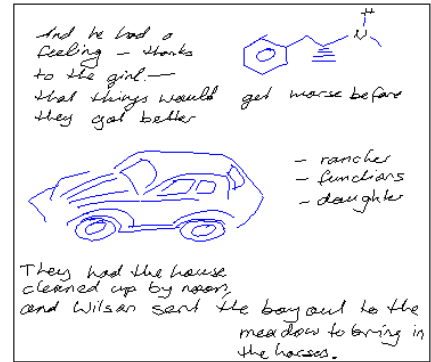 And he had a
feeling - thanks
to the girl -
that things would get worse before
they got better
H
N
- rancher
- functions
- daughter
They had the house
cleaned up by noon,
and Wilson sent the boy out to the
meadow to bring in
the horses.